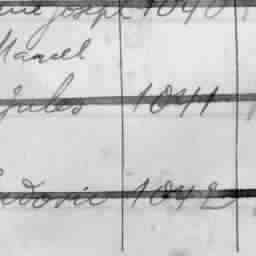 joseph 1040
Marcel
jules 1041
Ludovic 1042